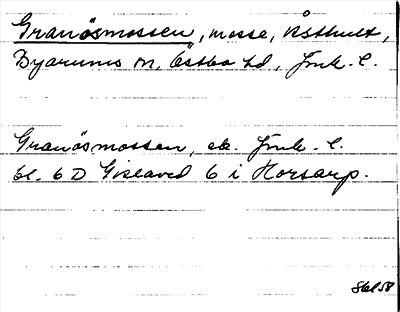 Granösmossen, mosse, Åsthult,
Byarums sn, Östbo hd, Jönk. l.
Granösmossen, ek. Jönk. l.
bl. 6 D Gislaved 6 i Horsarp.
Skl 58